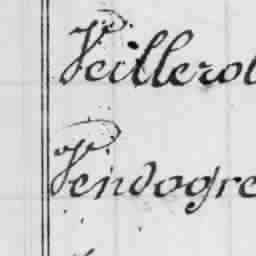 Veillerot
Vendogre